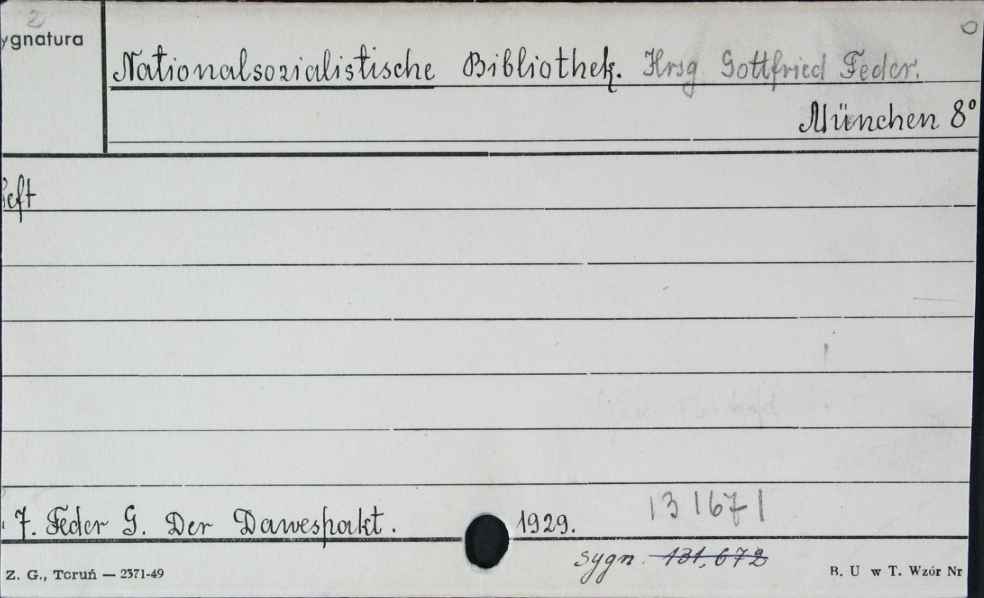 2
ygnatura
Nationalsozialistische Bibliothek. Hrsg Gottfried Feder.
München 8°
Heft
7. Feder G. Der Dawespakt. 1929.
131671
sygn. 131,672
Z. G., Toruń — 2371-49
B. U w T. Wzór Nr